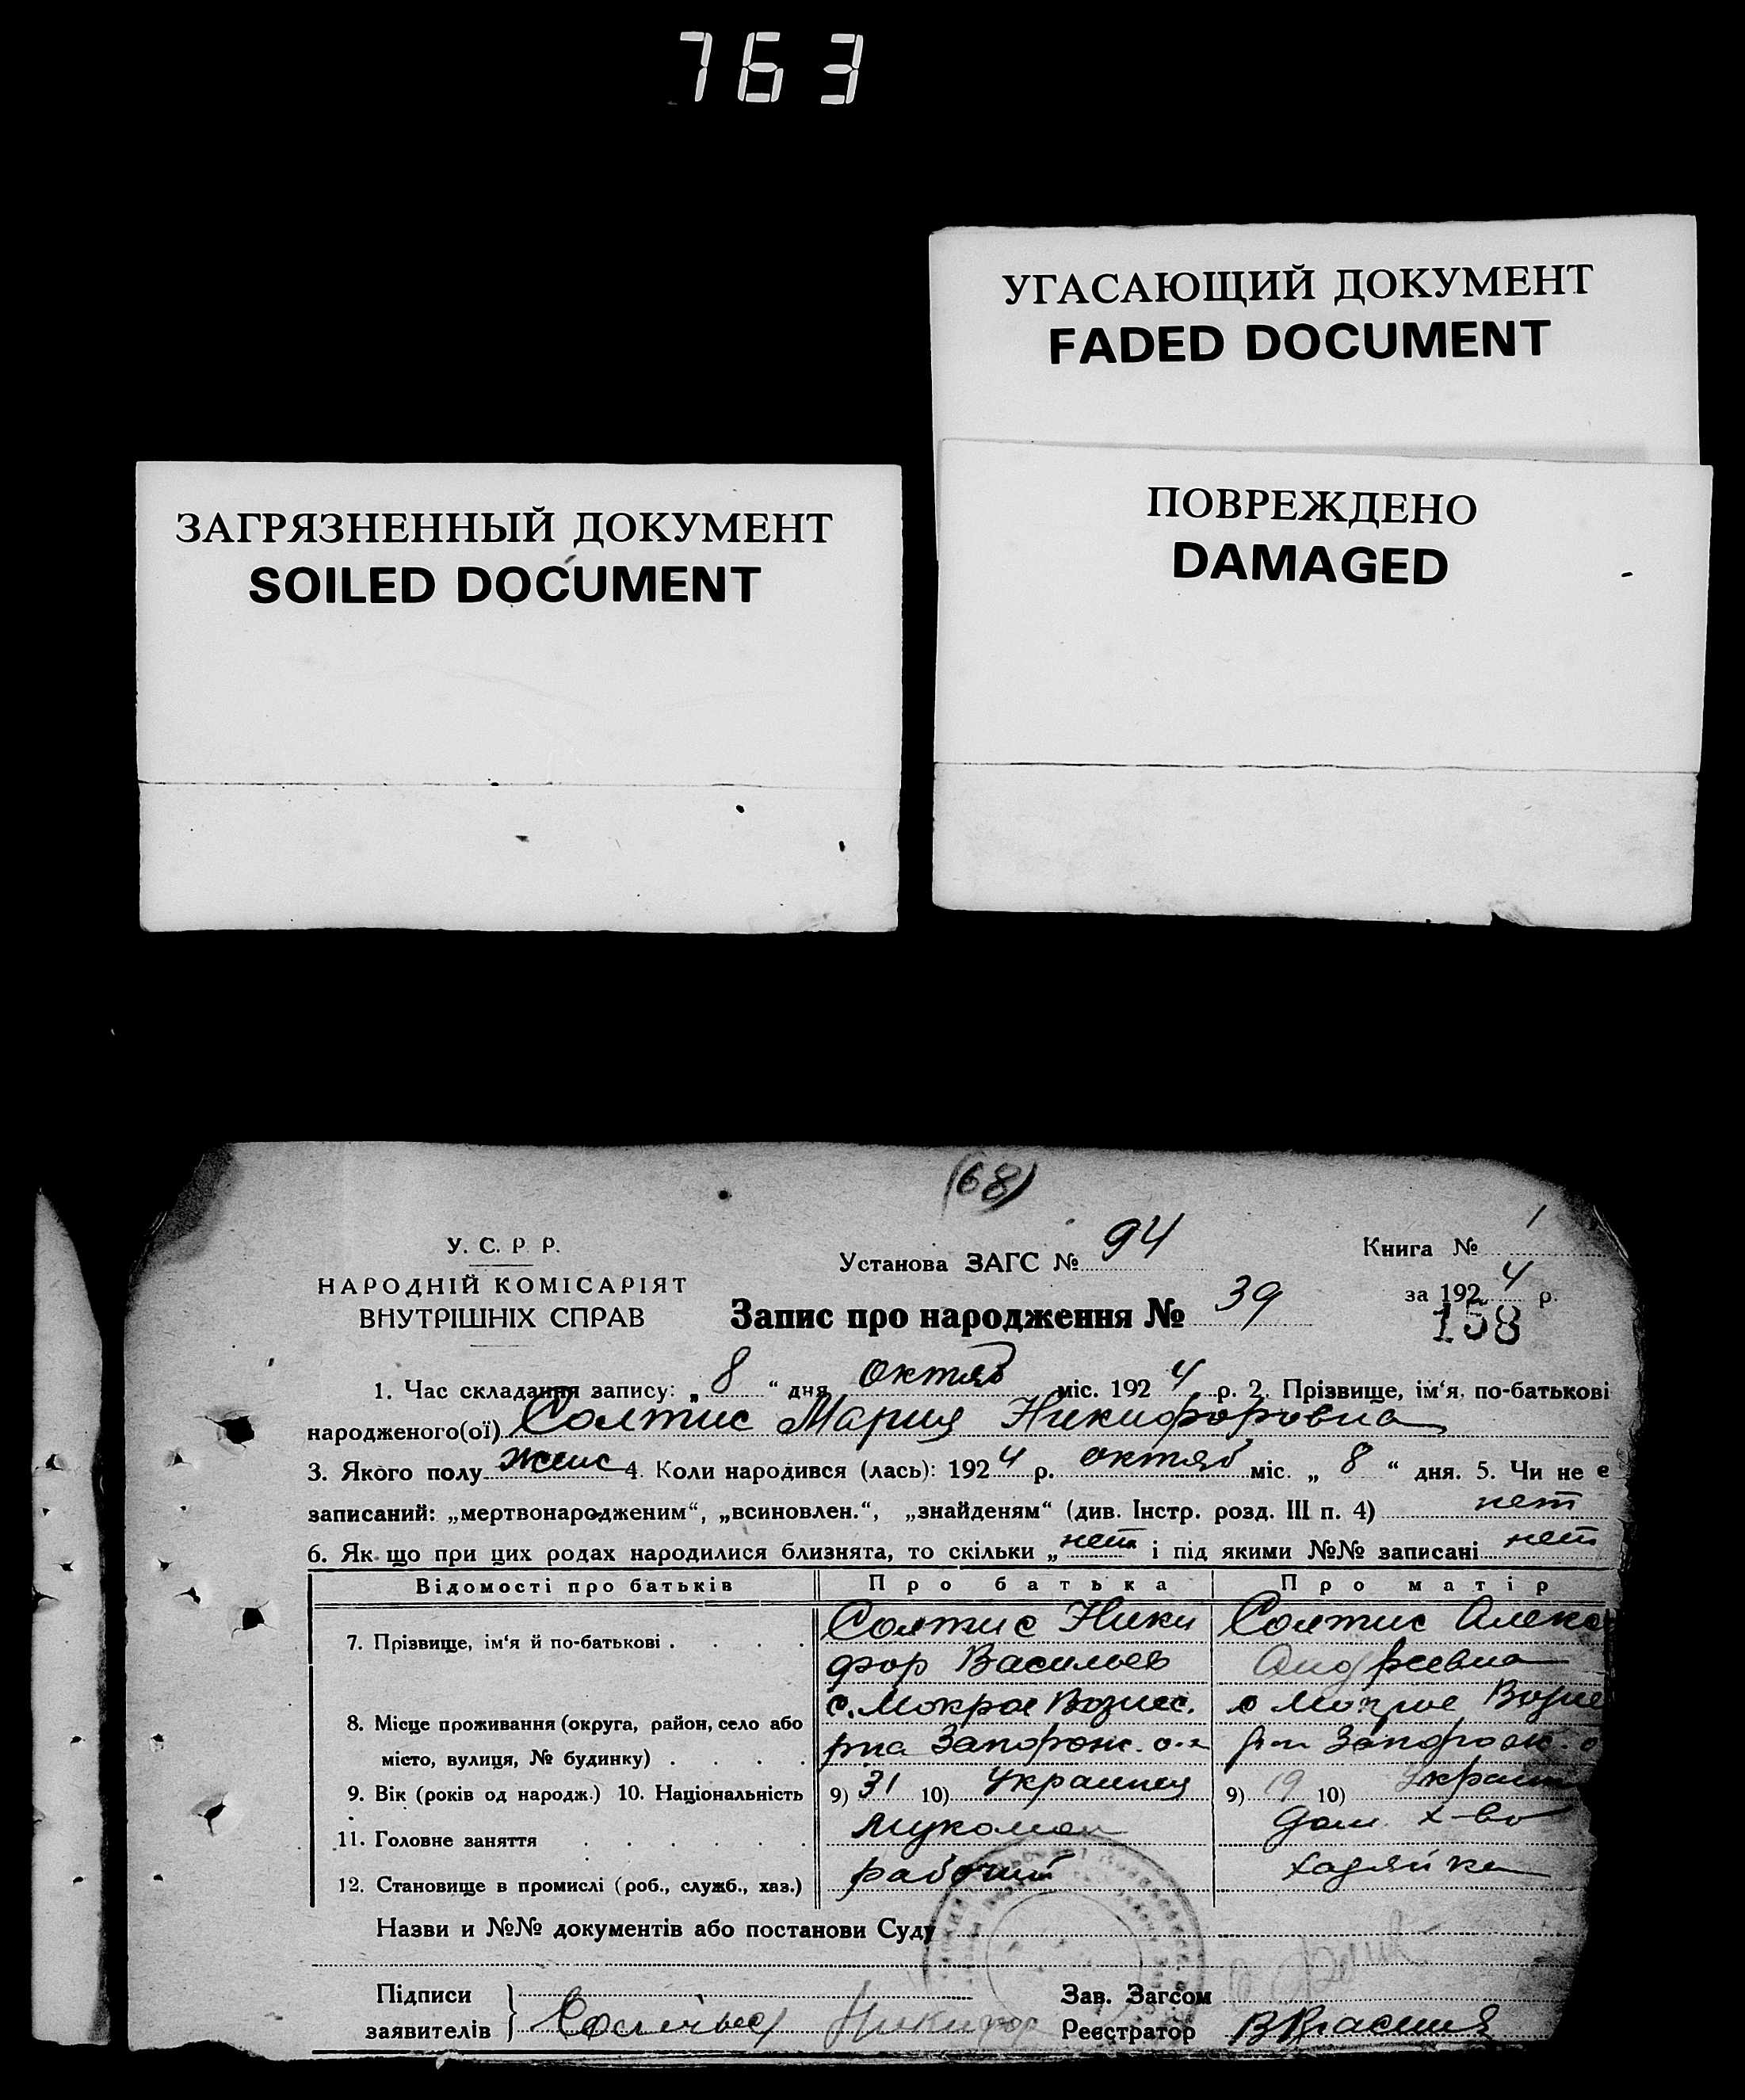 763
УГАСАЮЩИЙ ДОКУМЕНТ
FADED DOCUMENT
ЗАГРЯЗНЕННЫЙ ДОКУМЕНТ
SOILED DOCUMENT
ПОВРЕЖДЕНО
DAMAGED
(68)
У. С. Р. Р.
НАРОДНІЙ КОМІСАРІЯТ
ВНУТРІШНІХ СПРАВ
Установа ЗАГС № 94
Книга № 1
за 1924 р.
Запис про народження № 39
158
1. Час складання запису: „8“ дня октяб міс. 1924 р. 2. Прізвище, ім‘я, по-батькові
народженого(ої) Солтис Мария Никифоровна
3. Якого полу женс 4. Коли народився (лась): 1924 р. октяб міс. „8“ дня. 5. Чи не є
записаний: „мертвонародженим“, „всиновлен.“, „знайденям“ (див. Інстр. розд. III п. 4) нет
6. Як що при цих родах народилися близнята, то скільки „нет і під якими №№ записані нет
Відомості про батьків Про батька Про матір
7. Прізвище, ім‘я й по-батькові . . . . Солтис Ники Солтис Алекс
фор Васильев Андреевна
8. Місце проживання (округа, район, село або с. Мокрое Вознес. с Мокрое Возне
місто, вулиця, № будинку) . . . . рна Запорож. о-г р-н Запорож. о
9. Вік (років од народж.) 10. Національність 9) 31 10) Украинец 9) 19 10) Украин
11. Головне заняття . . . . . . мукомол дом. х-во
12. Становище в промислі (роб., служб., хаз.) рабочий хазяйка
Назви и №№ документів або постанови Суду
Підписи
заявителів } Никифор
Зав. Загсом
Реєстратор